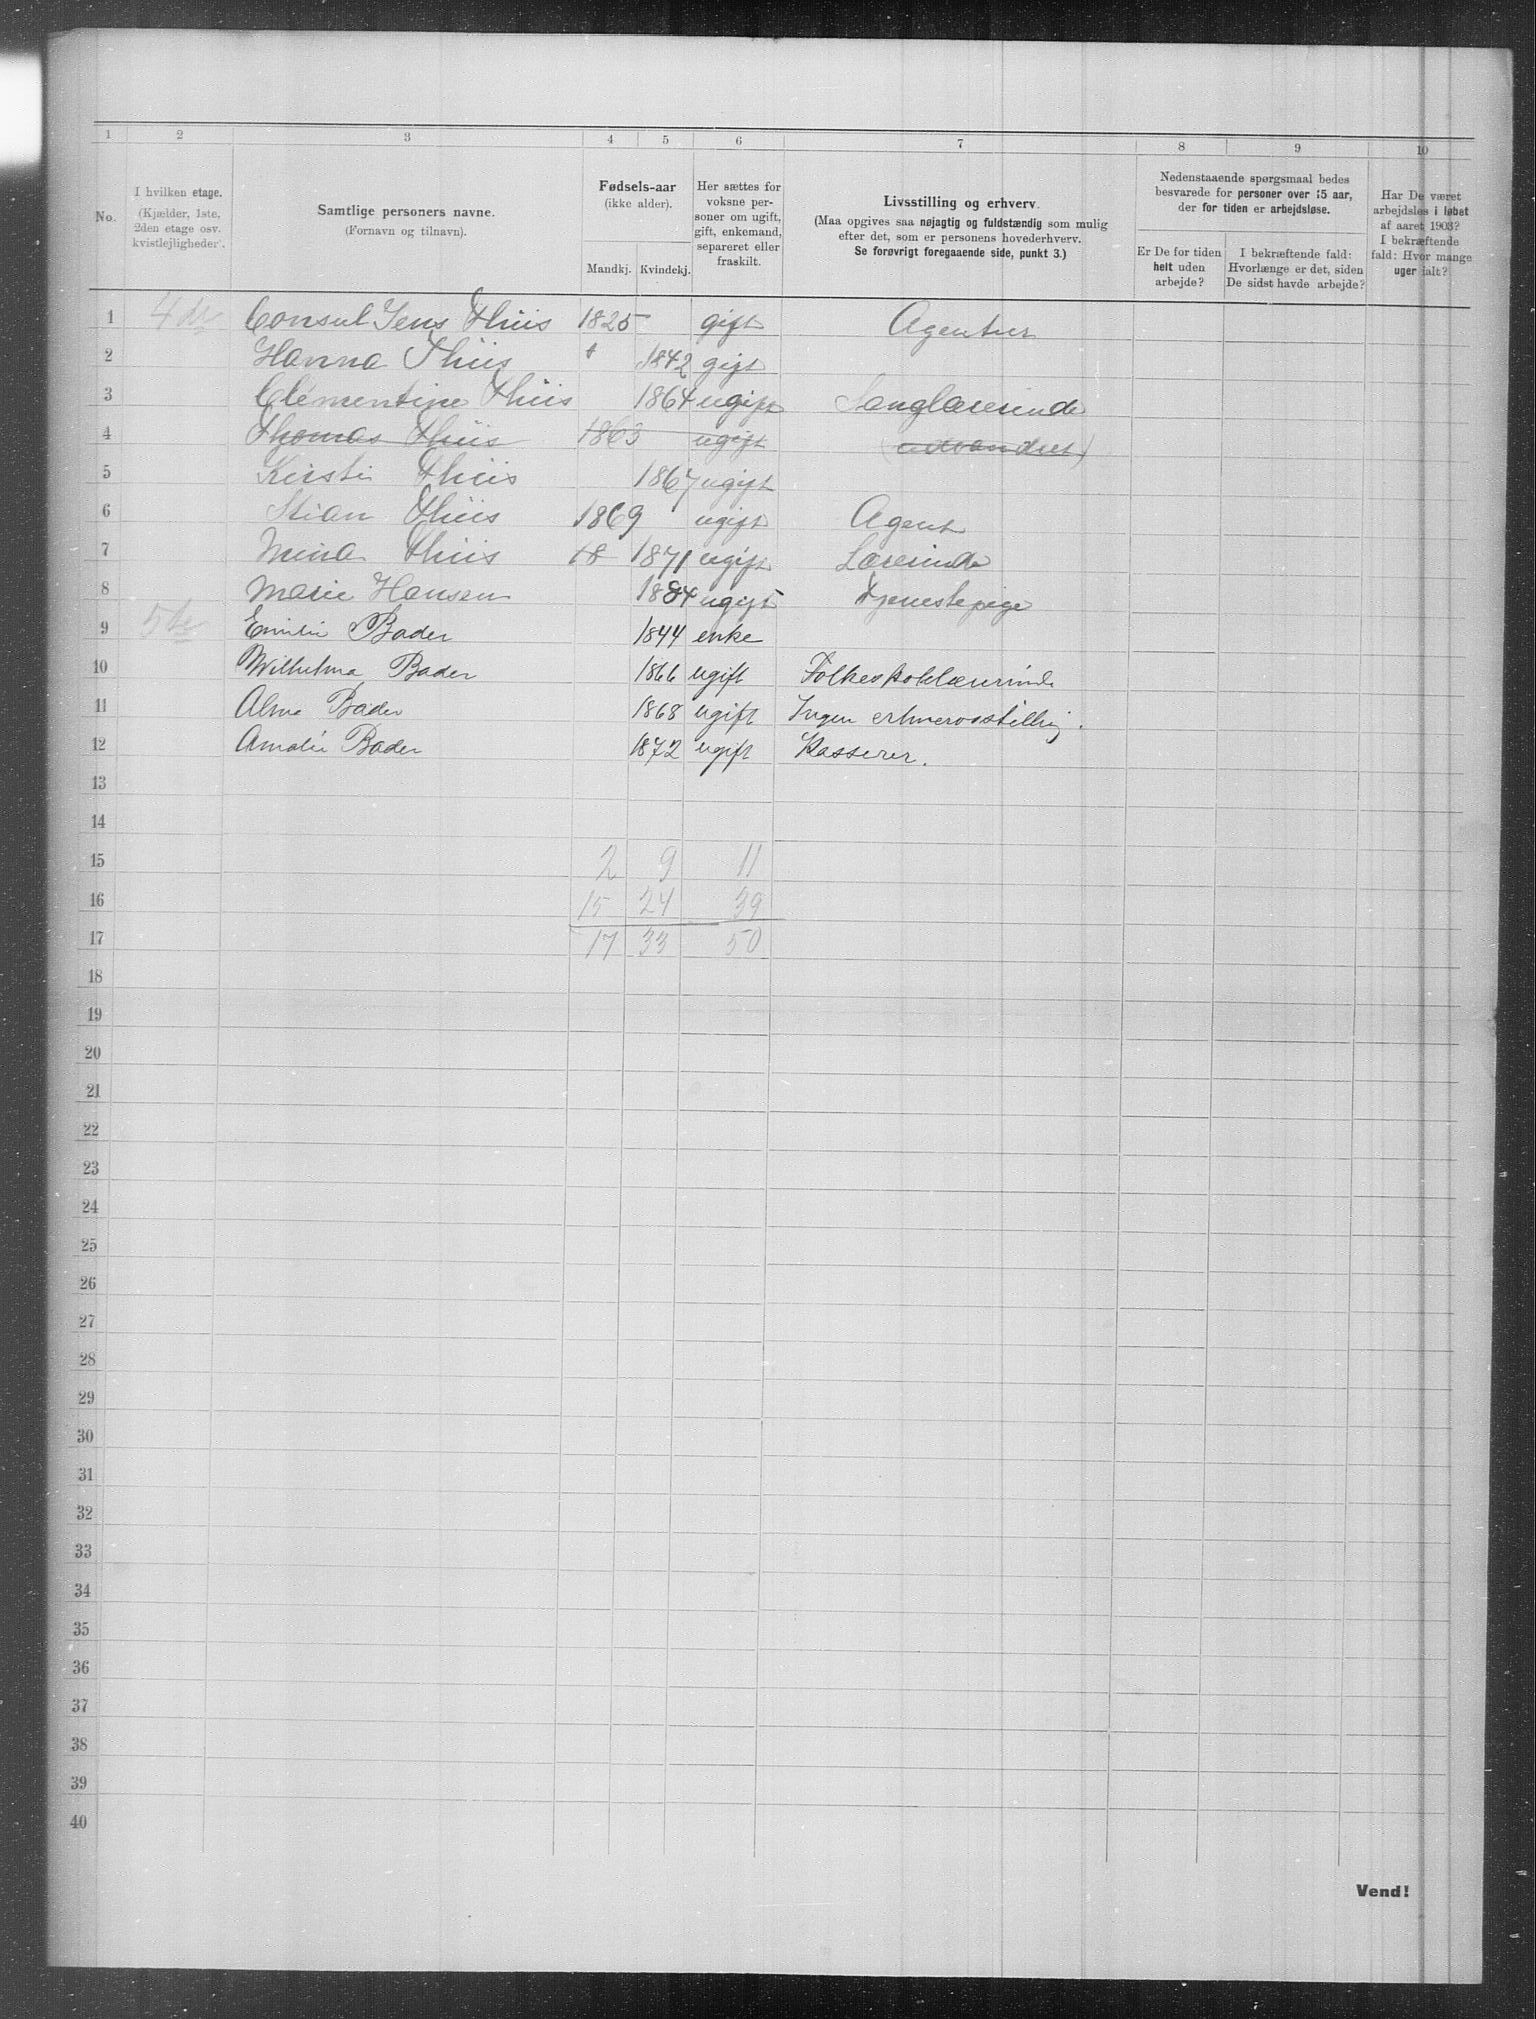 1 2 3 4 5 6 7 8 9 10
No.
I hvilken etage.
(Kjælder, 1ste,
2den etage osv.
kvistlejligheder).
Samtlige personers navne.
(Fornavn og tilnavn).
Fødsels-aar
(ikke alder).
Mandkj. Kvindekj.
Her sættes for
voksne per-
soner om ugift,
gift, enkemand,
separeret eller
fraskilt.
Livsstilling og erhverv.
(Maa opgives saa nøjagtig og fuldstændig som mulig
efter det, som er personens hovederhverv.
Se forøvrigt foregaaende side, punkt 3.)
Nedenstaaende spørgsmaal bedes
besvarede for personer over 15 aar,
der for tiden er arbejdsløse.
Er De for tiden
helt uden
arbejde?
I bekræftende fald:
Hvorlænge er det, siden
De sidst havde arbejde?
Har De været
arbejdsløs i løbet
af aaret 1903?
I bekræftende
fald: Hvor mange
uger ialt?
1 4de Consul Jens Thiis 1825 gift Agentur
2 Hanna Thiis 1842 gift
3 Clementine Thiis 1864 ugift Sanglærerinde
4 Thomas Thiis 1863 ugift (udvandret)
5 Kirsti Thiis 1867 ugift
6 Stian Thiis 1869 ugift Agent
7 Mina Thiis 18 1871 ugift Lærerinde
8 Marie Hansen 1884 ugift Tjenestepige
9 5te Emilie Bader 1844 enke
10 Wilhelma Bader 1866 ugift Folkeskolelærerinde
11 Alma Bader 1868 ugift Ingen erhvervsstilling.
12 Amalie Bader 1872 ugift Kasserer.
13
14
15 2 9 11
16 15 24 39
17 17 33 50
18
19
20
21
22
23
24
25
26
27
28
29
30
31
32
33
34
35
36
37
38
39
40
Vend!